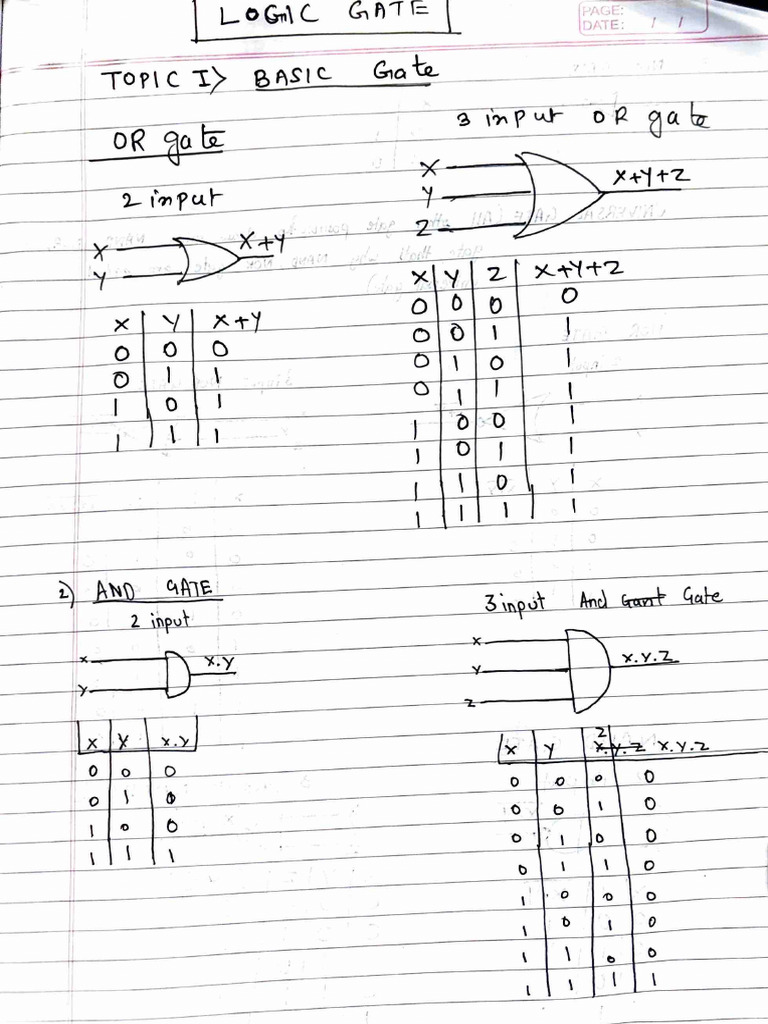 LOGIC GATE
PAGE:
DATE: / /
TOPIC I> BASIC Gate
OR gate
2 input
X
Y
X+Y
X Y X+Y
0 0 0
0 1 1
1 0 1
1 1 1
3 input OR gate
X
Y
Z
X+Y+Z
X Y Z X+Y+Z
0 0 0 0
0 0 1 1
0 1 0 1
0 1 1 1
1 0 0 1
1 0 1 1
1 1 0 1
1 1 1 1
2) AND GATE
2 input
X
Y
X.Y
X Y X.Y
0 0 0
0 1 0
1 0 0
1 1 1
3 input And Gant Gate
X
Y
Z
X.Y.Z
X Y Z X.Y.Z X.Y.Z
0 0 0 0
0 0 1 0
0 1 0 0
0 1 1 0
1 0 0 0
1 0 1 0
1 1 0 0
1 1 1 1